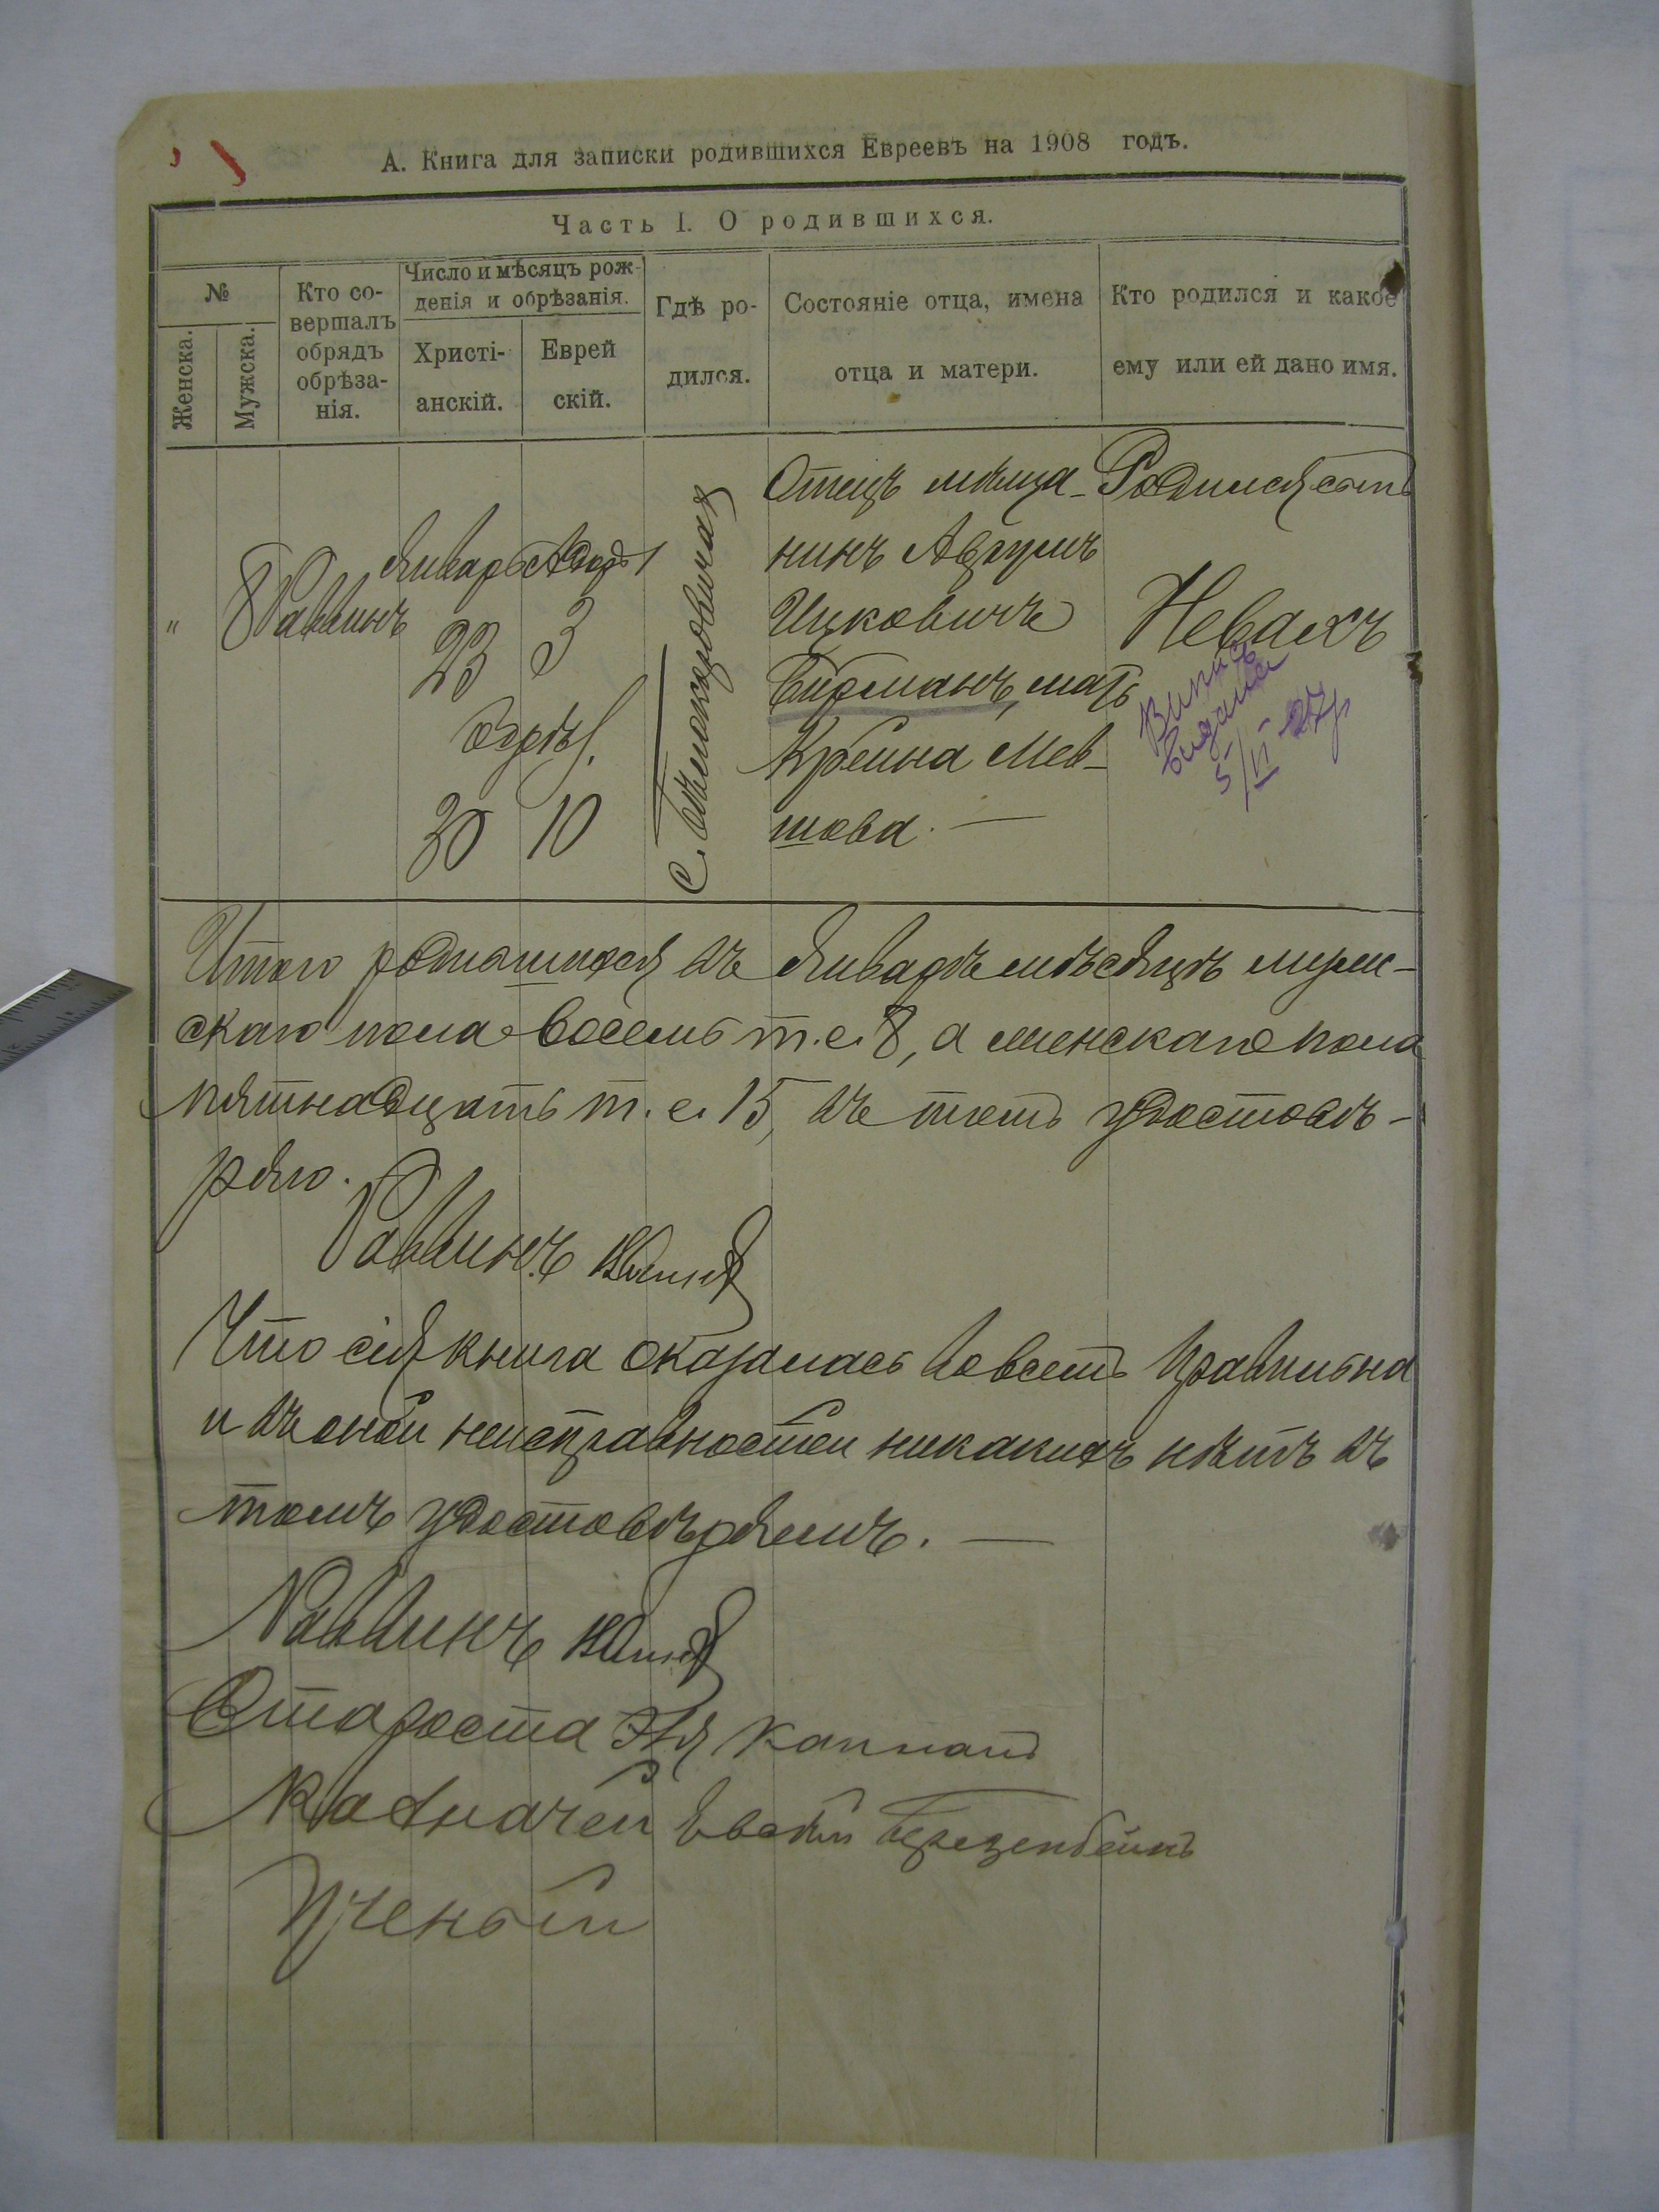 А. Книга для записки родившихся Евреевъ на 1908 годъ.
Часть I. О родившихся.
№
Женска.
Мужска.
Кто со-
вершалъ
обрядъ
обрѣза-
нія.
Число и мѣсяцъ рож-
денія и обрѣзанія.
Христі-
анскій.
Еврей
скій.
Гдѣ ро-
дился.
Состояніе отца, имена
отца и матери.
Кто родился и какое
ему или ей дано имя.
"
8
Раввинъ
Январь
23
Адаръ 1
3
обрѣз.
30
10
Отецъ мѣща-
нинъ Аврумъ
Ицковичъ
Бирманъ, мать
Крейна Мев-
шова. —
Родился сынъ
Невахъ
Випис
видана
5/VI - 27р
Итого родившихся въ Январѣ мѣсяцѣ муж-
скаго пола восемь т.е. 8, а женскаго пола
пятнадцать т.е. 15, въ томъ удостовѣ-
ряю.
Раввинъ
Что сія книга оказалась вовсемъ правильна
и въ оной неисправностей никакихъ нѣтъ въ
томъ удостовѣряемъ. —
Раввинъ
Староста Эля Капланъ
Казначей
Ученый